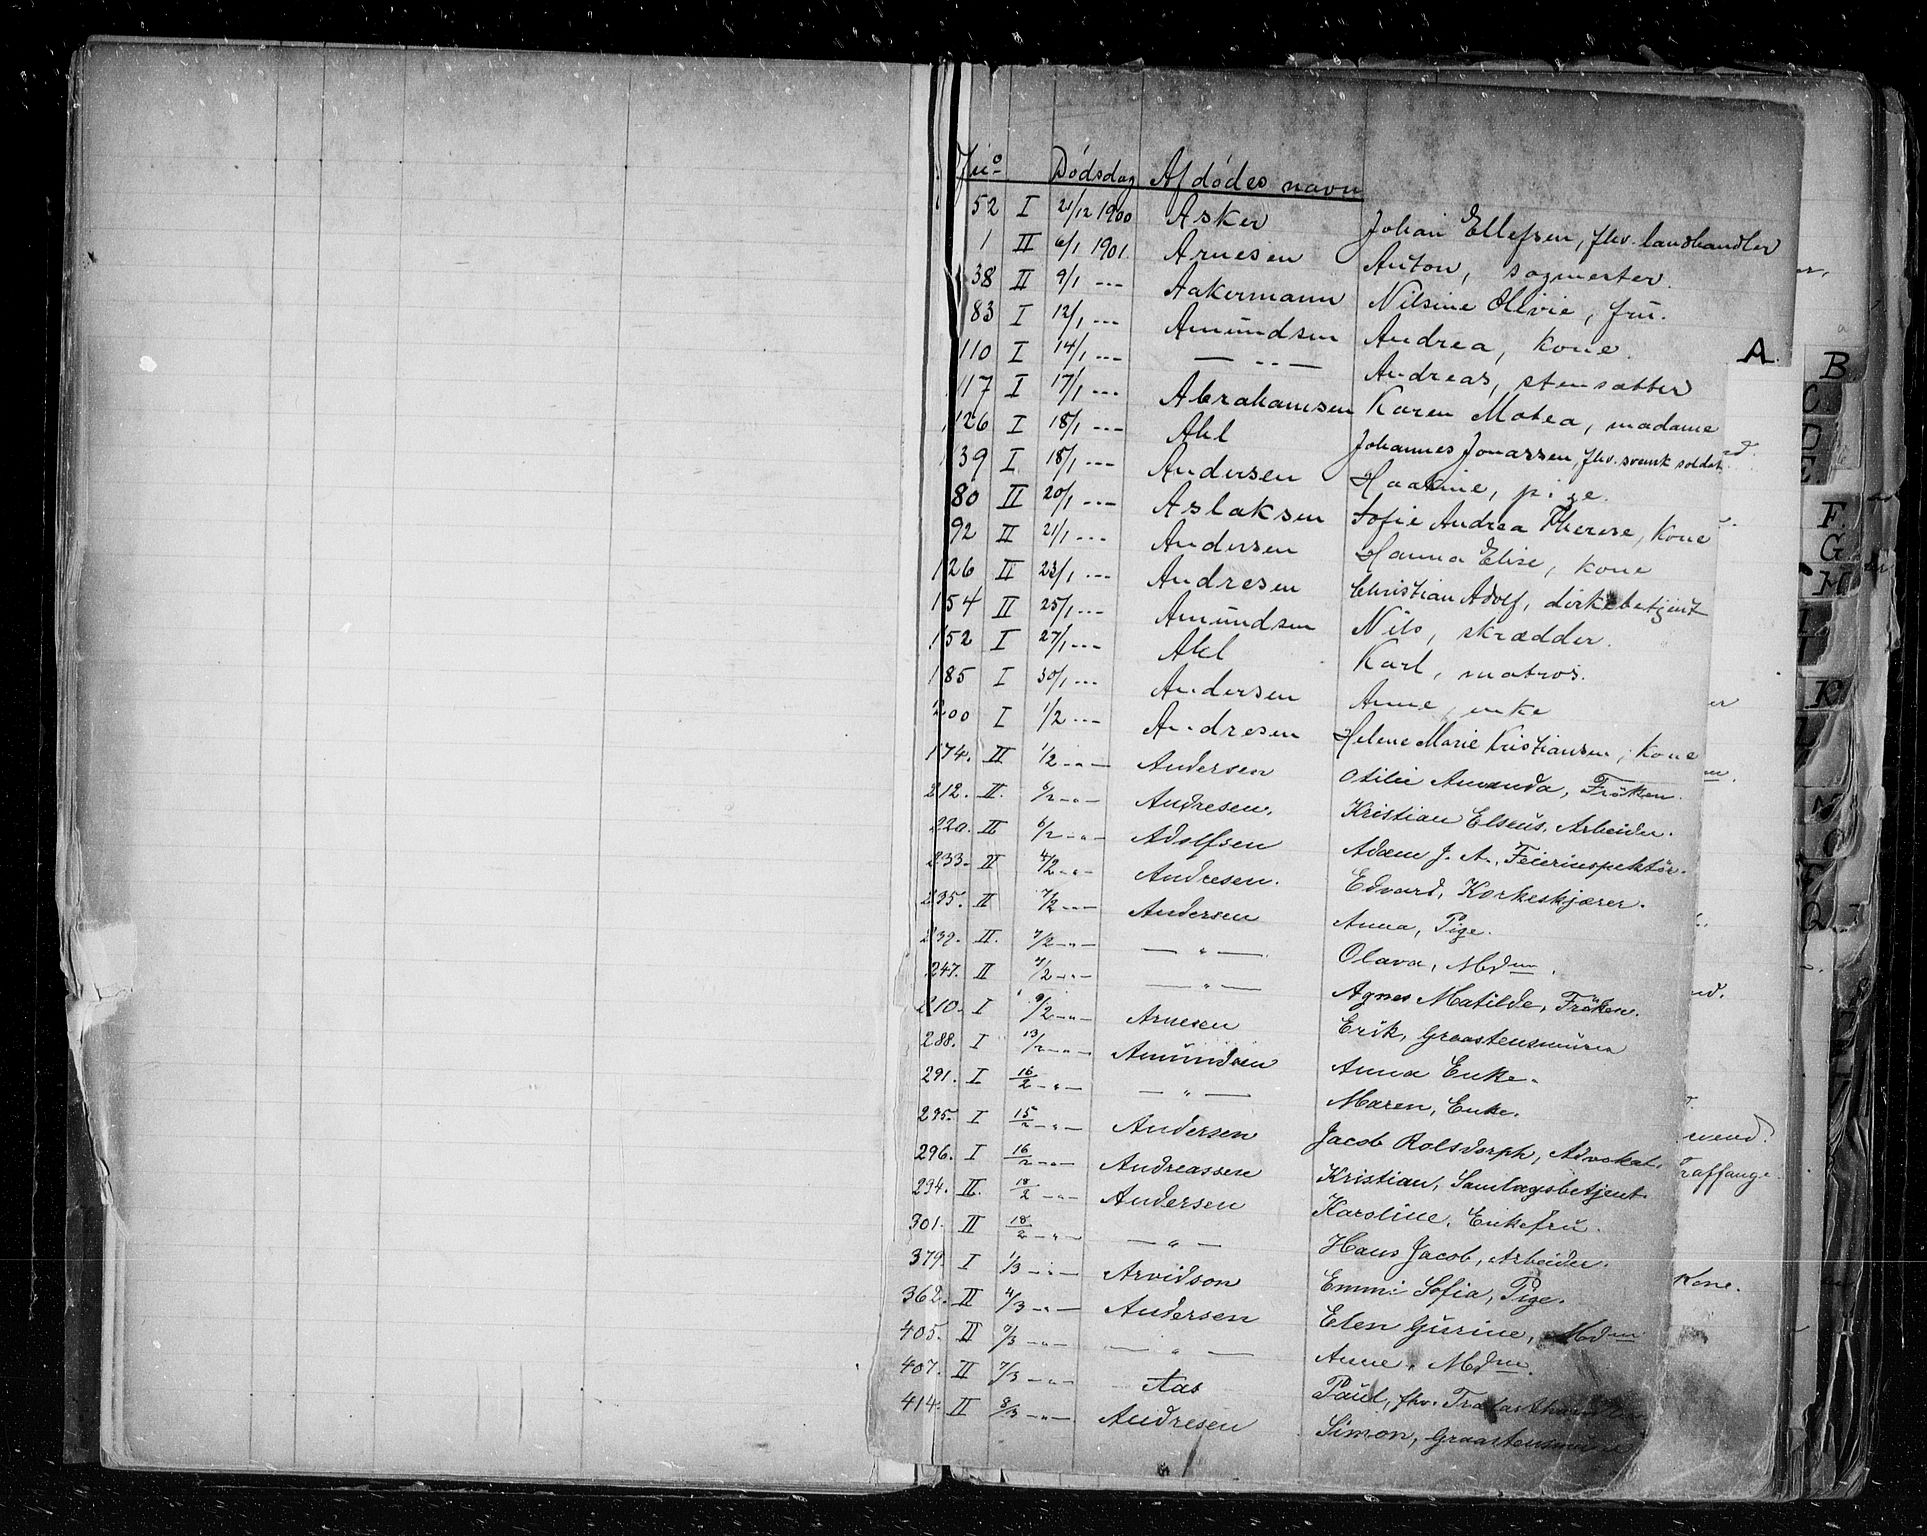 Jnº Dødsdag Afdødes navn
52 I 21/12 1900 Asker Johan Ellefsen, fhv. landhandler
1 II 6/1 1901. Arnesen Anton, sagmester.
38 II 9/1 --- Aakermann Nilsine Olivie, fru.
83 I 12/1 --- Amundsen Andrea, kone.
110 I 14/1 --- — „ — Andreas, stensætter
117 I 17/1 --- Abrahamsen Karen Matea, madame
126 I 18/1 --- Ahl Johannes Jonassen, fhv. svensk soldat
139 I 18/1 --- Andersen Haakine, pige.
80 II 20/1 --- Aslaksen Sofie Andrea Therese, kone
92 II 21/1 --- Andersen Hanna Elise, kone
126 II 23/1 --- Andresen Christian Adolf, dirkebetjent
154 II 25/1 --- Amundsen Nils, skrædder.
152 I 27/1 --- Ahl Karl, matros.
185 I 30/1 --- Andersen Anne, enke
200 I 1/2 --- Andresen Helene Marie Kristiansen, kone
174. II 1/2 -„- Andersen Otilie Amanda, Frøken.
212. II. 6/2 -„- Andresen. Kristian Elseus, Arbeider.
220. II 6/2 -„- Adolfsen Adam J. A., Feierinspektør.
233. II 4/2 -„- Andresen. Edvard, Korkeskjærer.
235. II 7/2 -„- Andersen Anna, Pige.
239. II. 7/2 -„- — „ — Olava, Mdm.
247. II 7/2 -„- — „ — Agnes Matilde, Frøken.
210. I 9/2 -„- Arnesen Erik, Graastensmurer
288. I 13/2 -„- Amundsen Anna Enke.
291. I 16/2 -„- — „ — Maren, Enke.
295. I 15/2 -„- Andersen Jacob Rolsdorph, Advokat.
296. I 16/2 -„- Andreassen Kristian, Samlagsbetjent.
294. II. 18/2 -„- Andersen Karoline, Enkefru.
301. II 18/2 -„- — „ — Hans Jacob, Arbeider.
379. I 1/3 -„- Arvidson Emmi Sofia, Pige.
362. II 4/3 -„- Andersen Elen Gurine, Mdm
405. II 7/3 -„- — „ — Anne, Mdm.
407. II 7/3 -„- Aas Paul, fhv. Trælasthandler
414. II 8/3 -„- Andresen Simon, Graastensmurer
A.
B
C
D
E.
F.
G
H
K
O
Q
wend.
Kone.